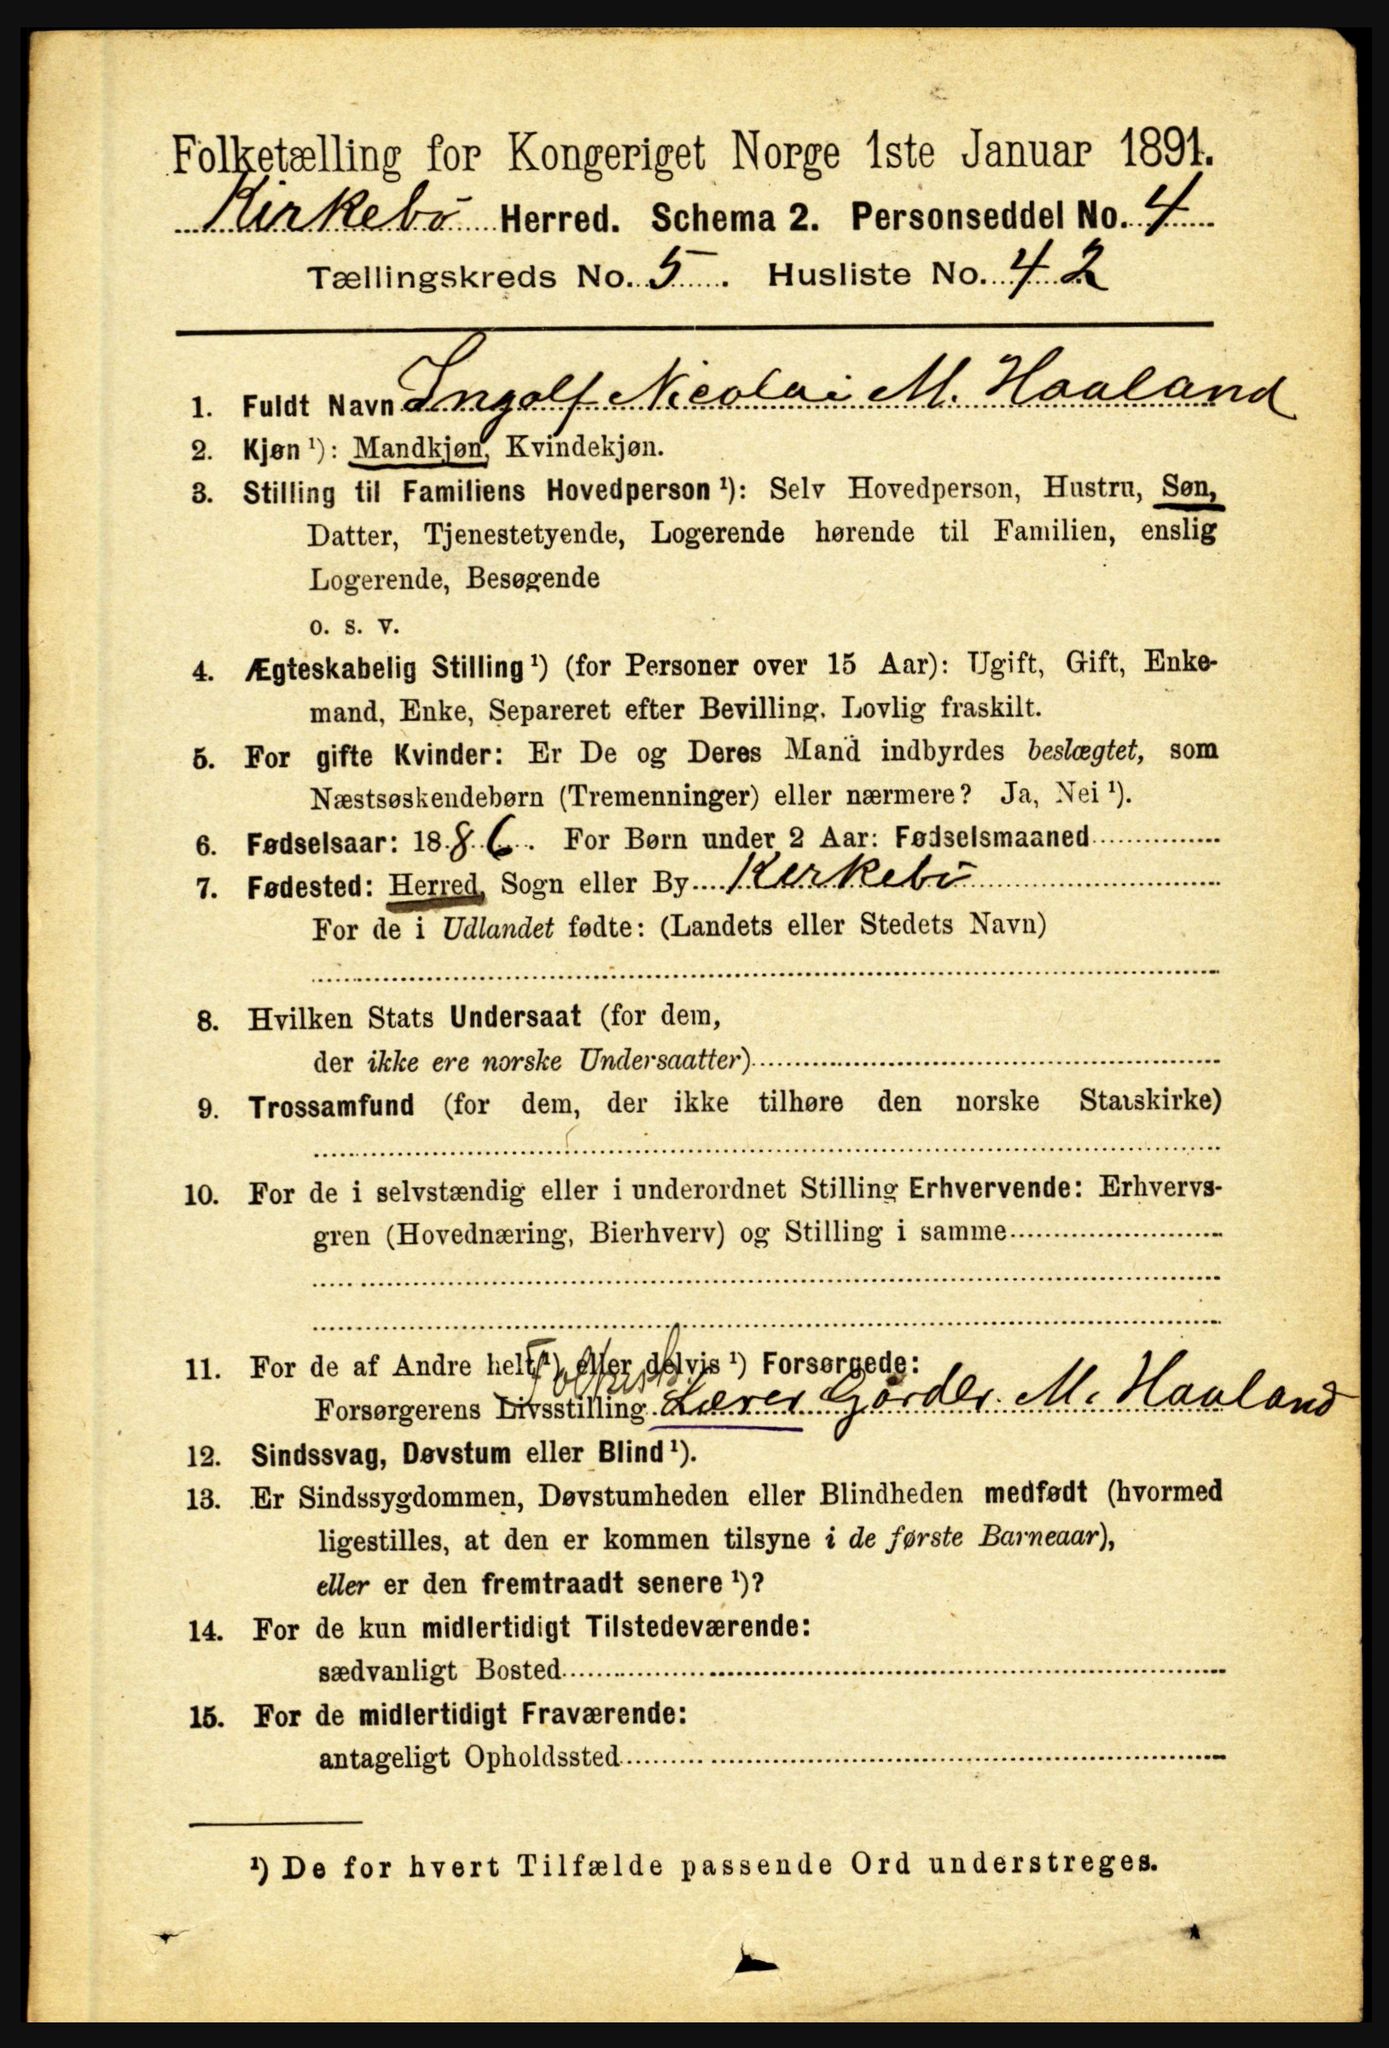 Folketælling for Kongeriget Norge 1ste Januar 1891.
Kirkebö Herred. Schema 2. Personseddel No. 4
Tællingskreds No. 5. Husliste No. 42
1. Fuldt Navn Ingolf Nicolai M. Haaland
2. Kjøn ¹): Mandkjøn, Kvindekjøn.
3. Stilling til Familiens Hovedperson ¹): Selv Hovedperson, Hustru, Søn,
Datter, Tjenestetyende, Logerende hørende til Familien, enslig
Logerende, Besøgende
o. s. v.
4. Ægteskabelig Stilling ¹) (for Personer over 15 Aar): Ugift, Gift, Enke-
mand, Enke, Separeret efter Bevilling. Lovlig fraskilt.
5. For gifte Kvinder: Er De og Deres Mand indbyrdes beslægtet, som
Næstsøskendebørn (Tremenninger) eller nærmere? Ja, Nei ¹).
6. Fødselsaar: 1886. For Børn under 2 Aar: Fødselsmaaned
7. Fødested: Herred, Sogn eller By Kirkebö
For de i Udlandet fødte: (Landets eller Stedets Navn)
8. Hvilken Stats Undersaat (for dem,
der ikke ere norske Undersaatter)
9. Trossamfund (for dem, der ikke tilhøre den norske Statskirke)
10. For de i selvstændig eller i underordnet Stilling Erhvervende: Erhvervs-
gren (Hovednæring, Bierhverv) og Stilling i samme
11. For de af Andre helt ¹) eller delvis ¹) Forsørgede:
Forsørgerens Livsstilling Lærer Gårdbr. M. Haaland
12. Sindssvag, Døvstum eller Blind ¹).
13. Er Sindssygdommen, Døvstumheden eller Blindheden medfødt (hvormed
ligestilles, at den er kommen tilsyne i de første Barneaar),
eller er den fremtraadt senere ¹)?
14. For de kun midlertidigt Tilstedeværende:
sædvanligt Bosted
15. For de midlertidigt Fraværende:
antageligt Opholdssted
¹) De for hvert Tilfælde passende Ord understreges.